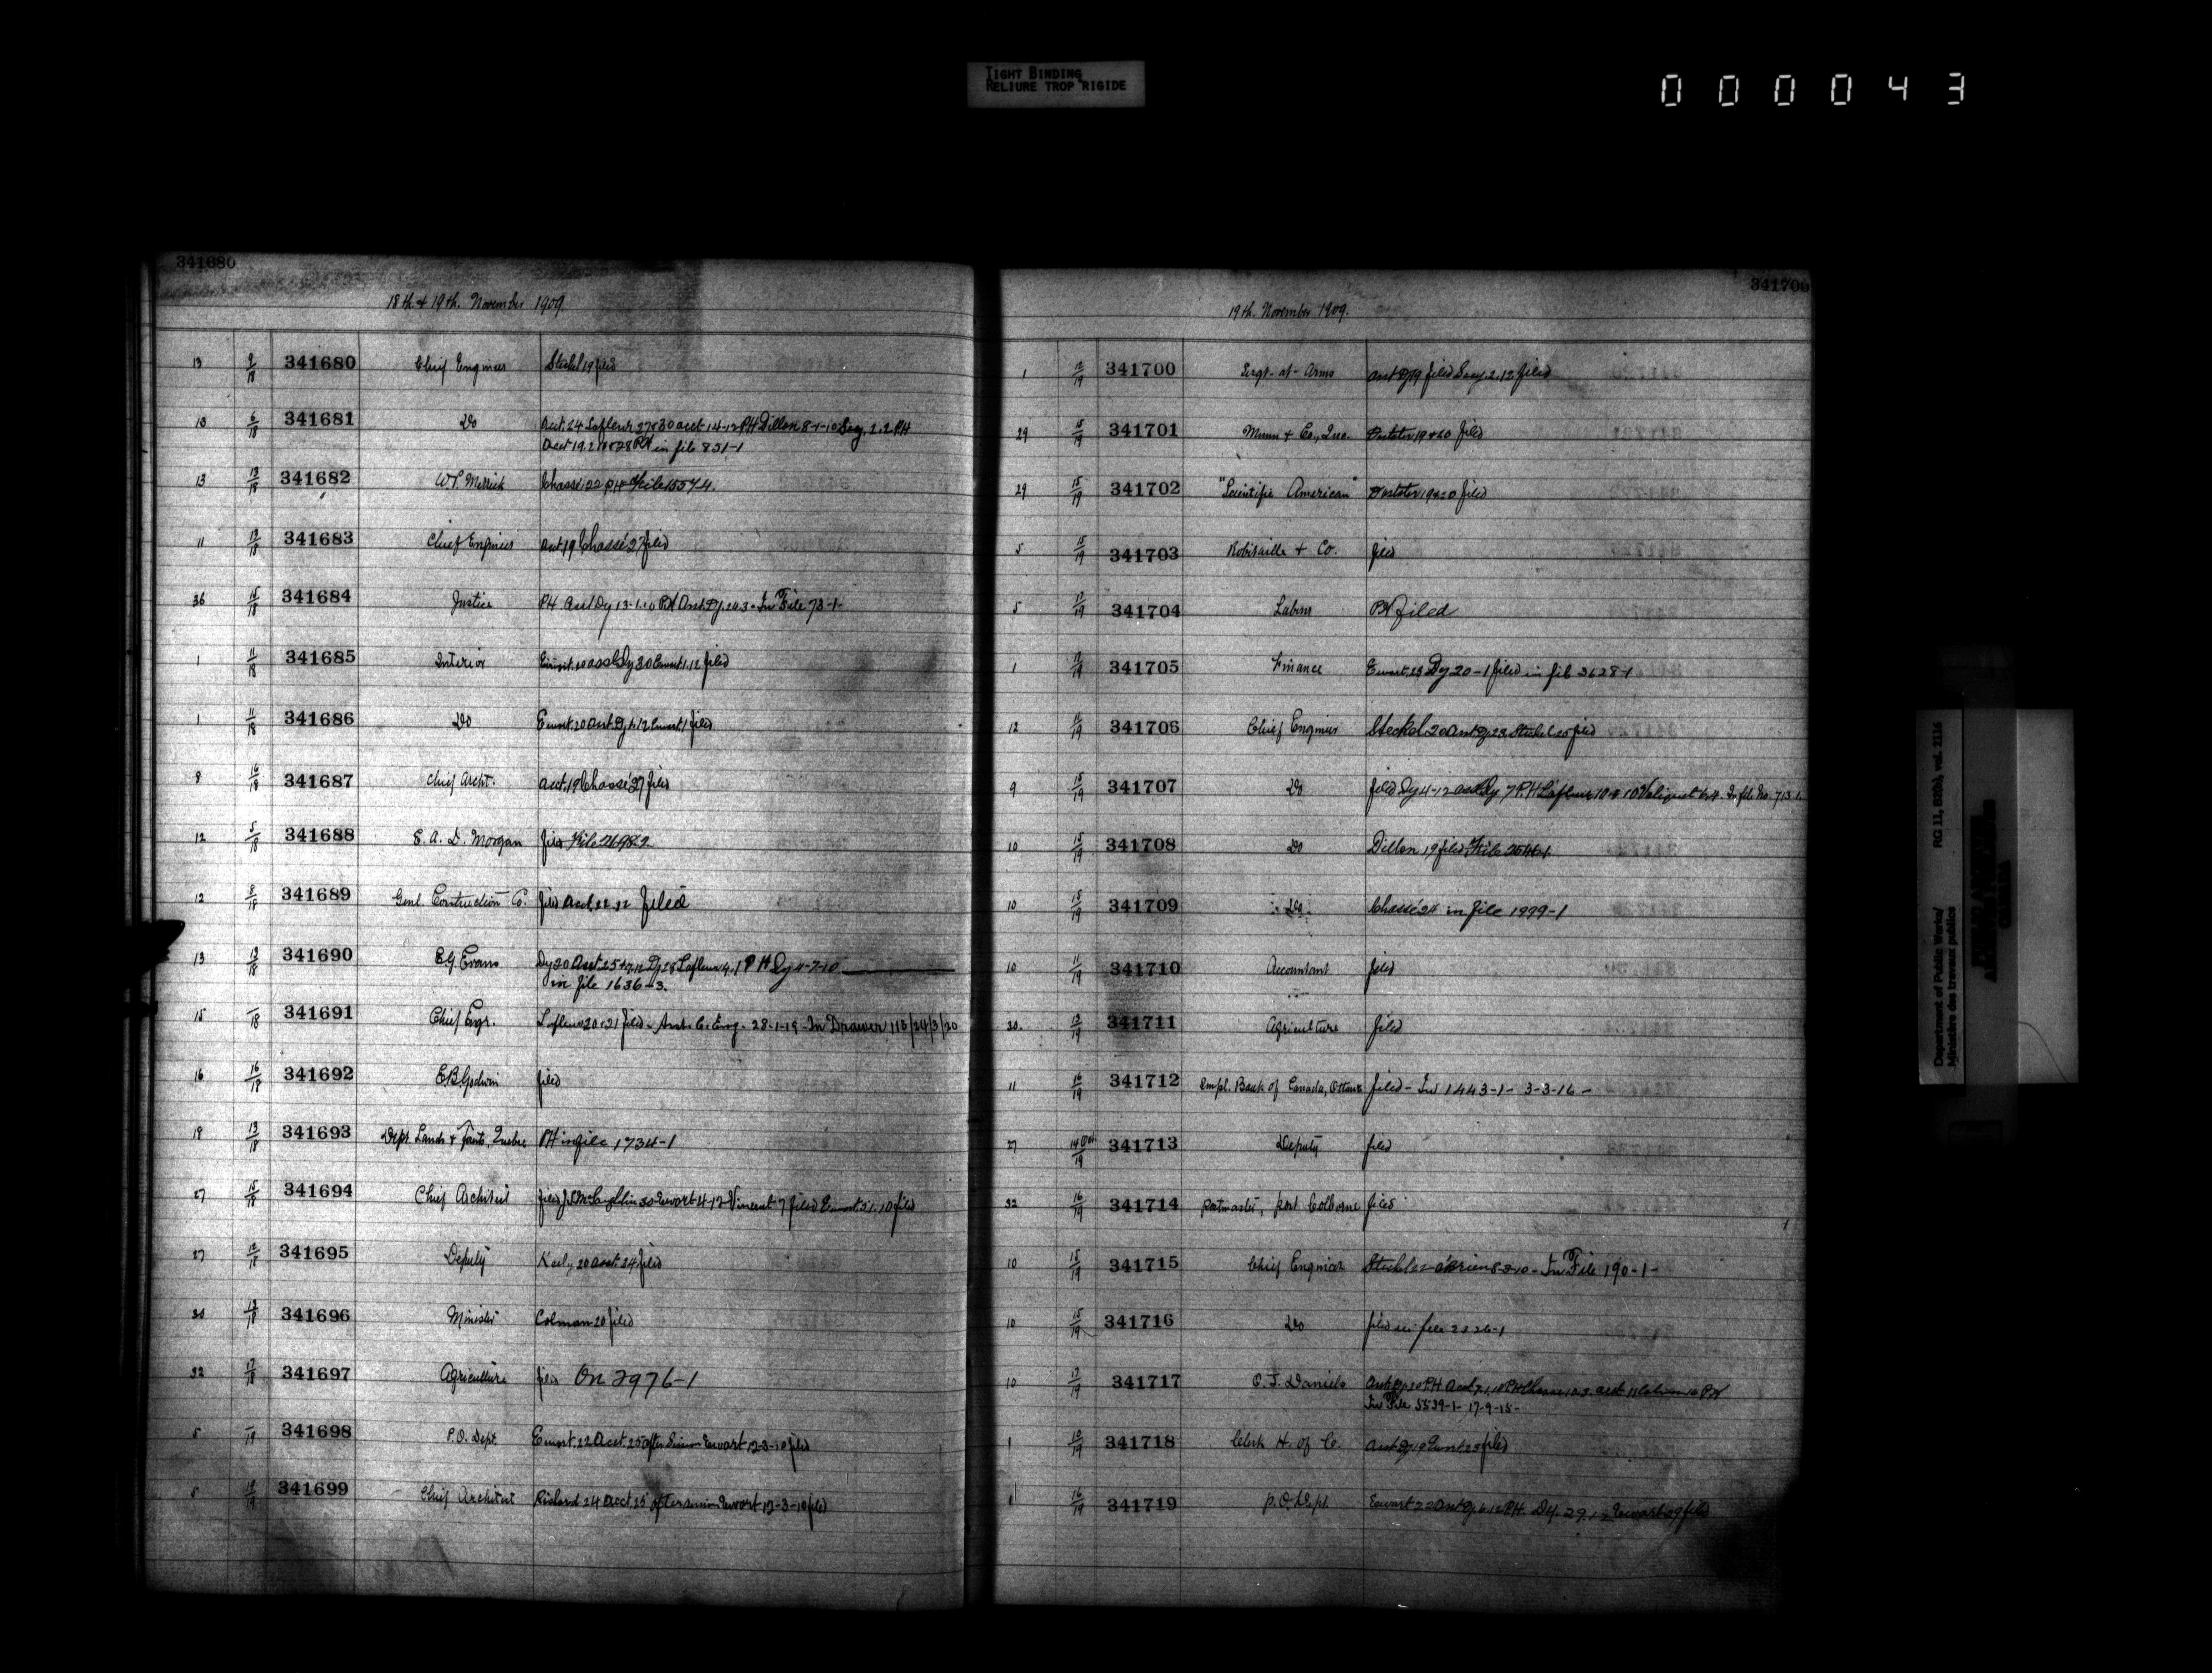 TIGHT BINDING
RELIURE TROP RIGIDE
000043
341680
18th & 19th. November 1909.
13 9/18 341680 Chief Engineer Steckel 19 filed
13 6/18 341681 Do Acct. 24 Lafleur 27 & 30 acct 14-12 PH Dillon 8-1-10 2.2 PH
in file 831-1
13 13/18 341682 Chassé 22 P.H. File 1557-4.
11 13/18 341683 Chief Engineer Chassé 27 filed
36 15/18 341684 Justice PH Asst Dy 13-1-10 PH Asst. Dy. In File 73-1-
1 11/18 341685 Interior Ewart filed
1 11/18 341686 Do Ewart. 20 Asst Dy Ewart filed
8 16/18 341687 Chief Archt. acct. 19 Chassé 27 filed
12 5/18 341688 E. A. D. Morgan filed File 2698-2
12 8/18 341689 Genl. Construction Co. filed Acct. filed
13 13/18 341690 E.G. Evans Dy 20 Asst. Lafleur 4.1 P H Dy 4-7-10
in file 1636-3.
15 –/18 341691 Chief Engr. Lafleur 20 & 21 filed - Asst. C. Eng. 28-1-19 - In Drawer 113/24/3/20
16 16/18 341692 E.B. Godwin filed
19 13/18 341693 Dept Lands & Quebec PH in file 1734-1
27 15/18 341694 Chief Architect filed J.S. McLaughlin 30 Ewart 4-12 Vincent 7 filed Ewart filed
27 12/18 341695 Deputy 20 acct. 24 filed
30 13/18 341696 Minister Colman 20 filed
32 17/18 341697 Agriculture filed On 2976-1
5 –/19 341698 P.O. Dept. Ewart. 22 Acct. 25 Ewart 12-3-10 filed
5 341699 Chief Architect 24 Acct. 25 Ewart 12-3-10 filed
341700
19th. November 1909.
1 12/19 341700 Sergt-at-Arms filed 2.12 filed
29 15/19 341701 Munn & Co., Inc. 19 & 20 filed
29 15/19 341702 "Scientific American" 19 & 20 filed
5 15/19 341703 Robitaille & Co. filed
5 17/19 341704 Labour PH filed
1 17/19 341705 Finance Ewart 23 Dy 20-1 filed in file 3628-1
12 11/19 341706 Chief Engineer Steckel 20 Asst Dy. 23 Steckel 25 filed
9 15/19 341707 Do filed Dy 4-12 Asst Dy 7 P.H Lafleur In file No. 713-1.
10 15/19 341708 Do Dillon 19 filed File 2546-1
10 15/19 341709 Do Chassé 24 in file 1999-1
10 11/19 341710 Accountant filed
30. 13/19 341711 Agriculture filed
11 16/19 341712 Impl. Bank of Canada, Ottawa filed - In 1443-1- 3-3-16 -
27 14 Oct./19 341713 Deputy filed
32 16/19 341714 Postmaster, Port Colborne filed
10 15/19 341715 Chief Engineer Steckel 22 O'Brien In File 190-1-
10 15/19 341716 Do filed in file 2326-1
10 17/19 341717 O. J. Daniels
In File 5539-1- 17-9-15-
1 18/19 341718 Clerk H. of C. Asst Dy 19 Ewart 23 filed
1 16/19 341719 P.O. Dept. Ewart 22 Asst Dy P.H. Dy. 29.12 Ewart 29 filed
Department of Public Works/ RG 11, B2(b), vol. 2116
Ministère des travaux publics